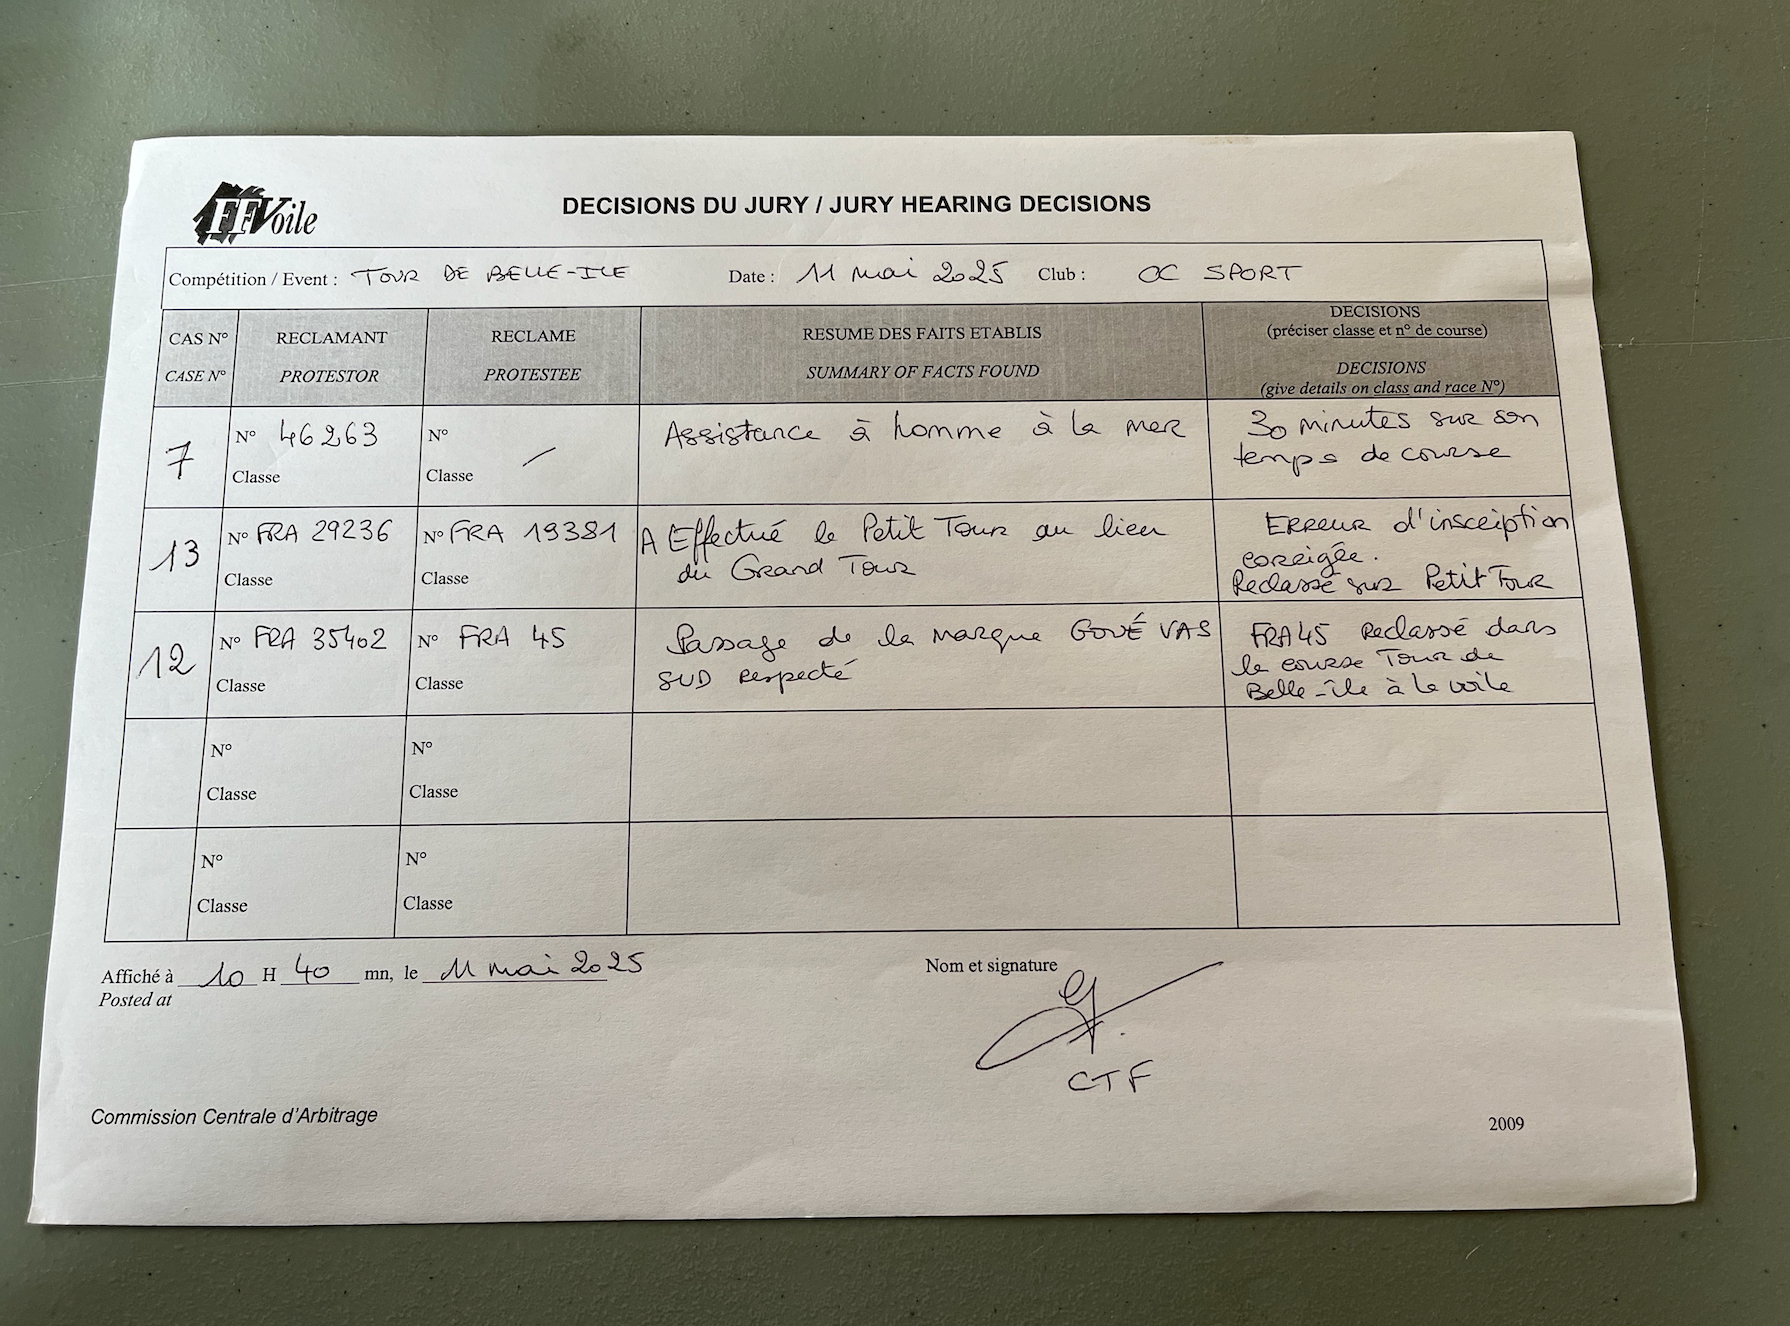 FFVoile
DECISIONS DU JURY / JURY HEARING DECISIONS
Compétition / Event : TOUR DE BELLE-ILE Date : 11 mai 2025 Club : OC SPORT
CAS N° RECLAMANT RECLAME RESUME DES FAITS ETABLIS DECISIONS
(préciser classe et n° de course)
CASE N° PROTESTOR PROTESTEE SUMMARY OF FACTS FOUND DECISIONS
(give details on class and race N°)
7 N° 46263 N° Assistance à homme à la mer 30 minutes sur son
Classe Classe temps de course
13 N° FRA 29236 N° FRA 19381 A Effectué le Petit Tour au lieu Erreur d'inscription
du Grand Tour corrigée.
Classe Classe Reclassé sur Petit Tour
12 N° FRA 35402 N° FRA 45 Passage de la marque GOUÉ VAS FRA45 Reclassé dans
SUD respecté la course Tour de
Classe Classe Belle-île à la voile
N° N°
Classe Classe
N° N°
Classe Classe
Affiché à 10 H 40 mn, le 11 mai 2025 Nom et signature
Posted at
CTF
Commission Centrale d'Arbitrage 2009